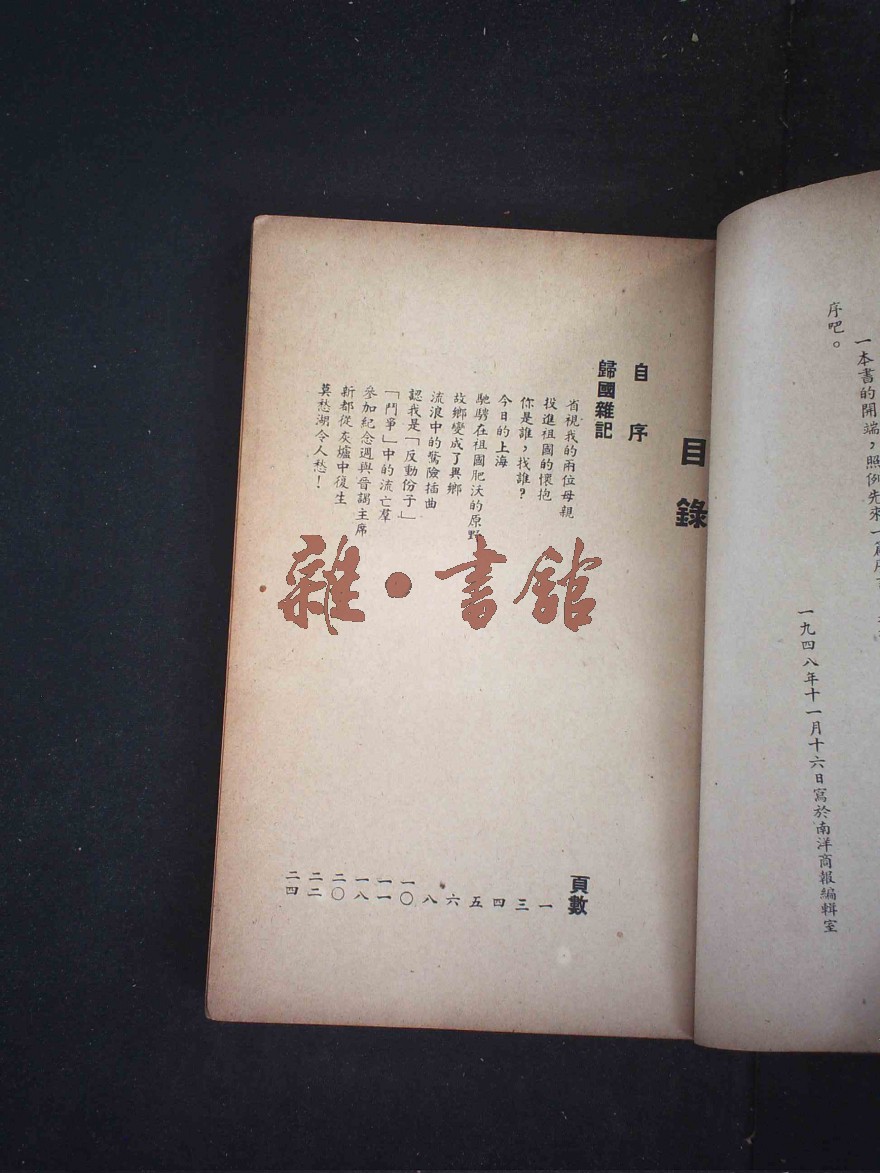 一本書的開端，照例先來一篇
序吧。
一九四八年十一月十六日寫於南洋商報編輯室
目錄
自序
歸國雜記
頁數
省視我的兩位母親 一
投進祖國的懷抱 三
你是誰，找誰？ 四
今日的上海 五
馳騁在祖國肥沃的原野 六
故鄉變成了異鄉 八
流浪中的驚險插曲 一〇
認我是「反動份子」 一一
「鬥爭」中的流亡羣 一八
參加紀念週與晉謁主席 二〇
新都從灰爐中復生 二二
莫愁湖令人愁！ 二四
雜·書館